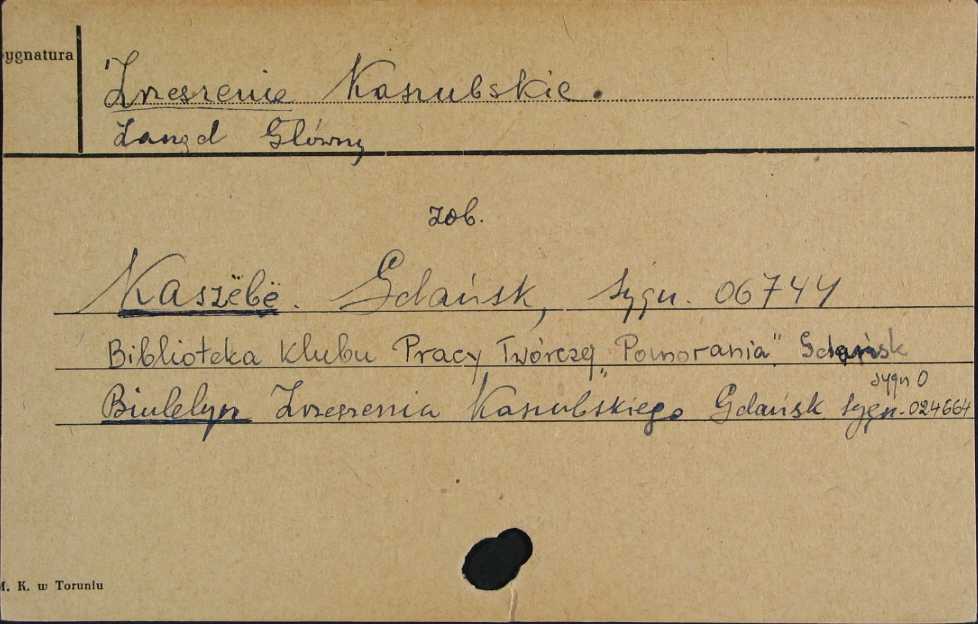 Sygnatura
Zrzeszenie Kaszubskie.
Zarząd Główny
zob.
Kaszëbë. Gdańsk, sygn. 06744
Biblioteka Klubu Pracy Twórczej "Pomorania" Gdańsk
sygn 0
Biuletyn Zrzeszenia Kaszubskiego Gdańsk sygn. 024664
M. K. w Toruniu